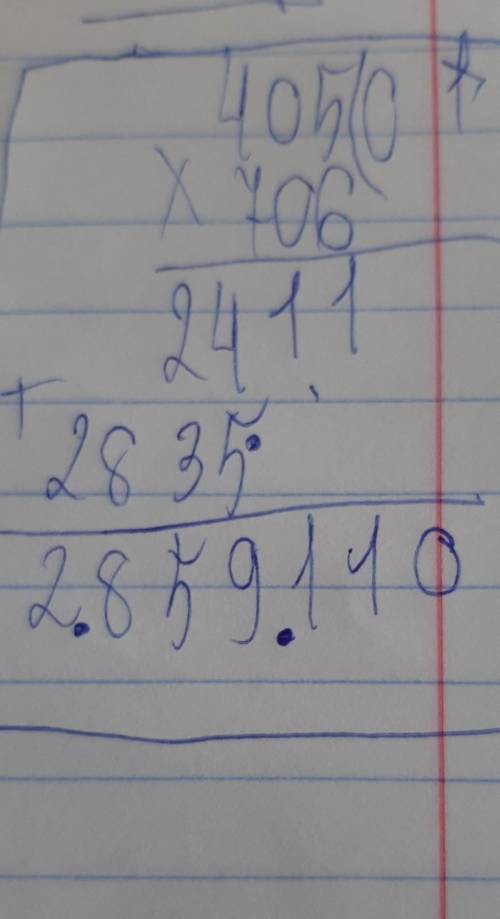 405(0
× 706
2411
+
2835
2.859.110